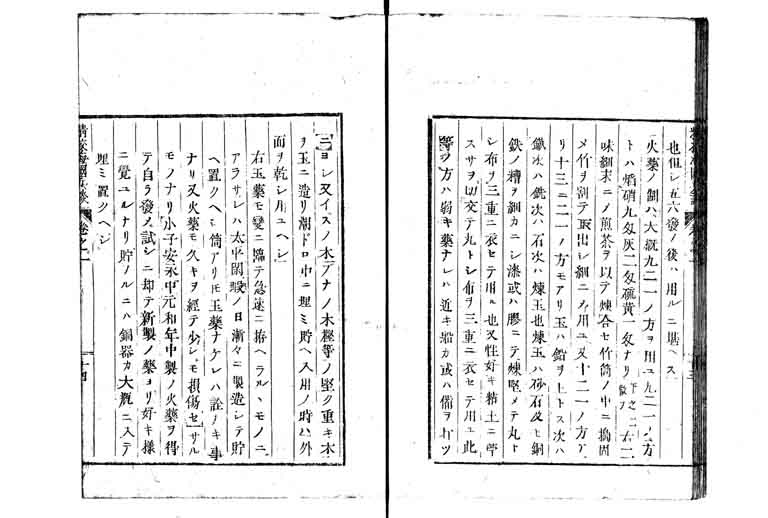 也但シ五六發ノ後ハ用ルニ堪ヘス
火藥ノ劑ハ大概九二一ノ方ヲ用ユ九二一ノ方
トハ焔硝九匁灰二匁硫黄一匁ナリ 下之ニ 右一
味細末ニノ煎茶ヲ以テ煉合セ竹筒ノ中ニ搗固
メ竹ヲ割テ取出シ細ニ刻用ユ又十二一ノ方ア
リ十三ニ二一ノ方モアリ玉ハ鉛ヲヒトス次ハ
鐵次ハ銑次ハ石次ハ煉玉也煉玉ハ砂石及ヒ銅
鉄ノ糟ヲ細カニシ漆或ハ膠ニテ煉堅メテ丸ト
シ布ヲ三重ニ衣セテ用ル也又性好キ粘土ニ苧
スサヲ切交テ丸トシ布ヲ三重ニ衣セテ用ユ此
等ノ方ハ弱キ藥ナレハ近キ船カ或ハ備ヲ打ツ
ニヨシ又イスノ木アナノ木樫等ノ堅ク重キ木
ヲ玉ニ造リ潮ドロ中ニ埋ミ貯ヘ入用ノ時ハ外
面ヲ乾シ用ユヘシ
右玉藥モ變ニ臨テ急速ニ拵ヘラルヽモノニ
アラサレハ太平閑暇ノ日漸々ニ製造シテ貯
ヘ置クヘシ筒アリモ玉藥ナケレハ詮ナキ事
ナリ又火藥モ久キヲ經テ少シモ損傷セサル
モノナリ小子安永中元和年中製ノ火藥ヲ得
テ自ラ發ノ試シニ却テ新製ノ藥ヨリ好キ様
ニ覺ユルナリ貯ノルニハ銅器カ大瓶ニ入テ
埋ミ置クヘシ
卷之一
十四